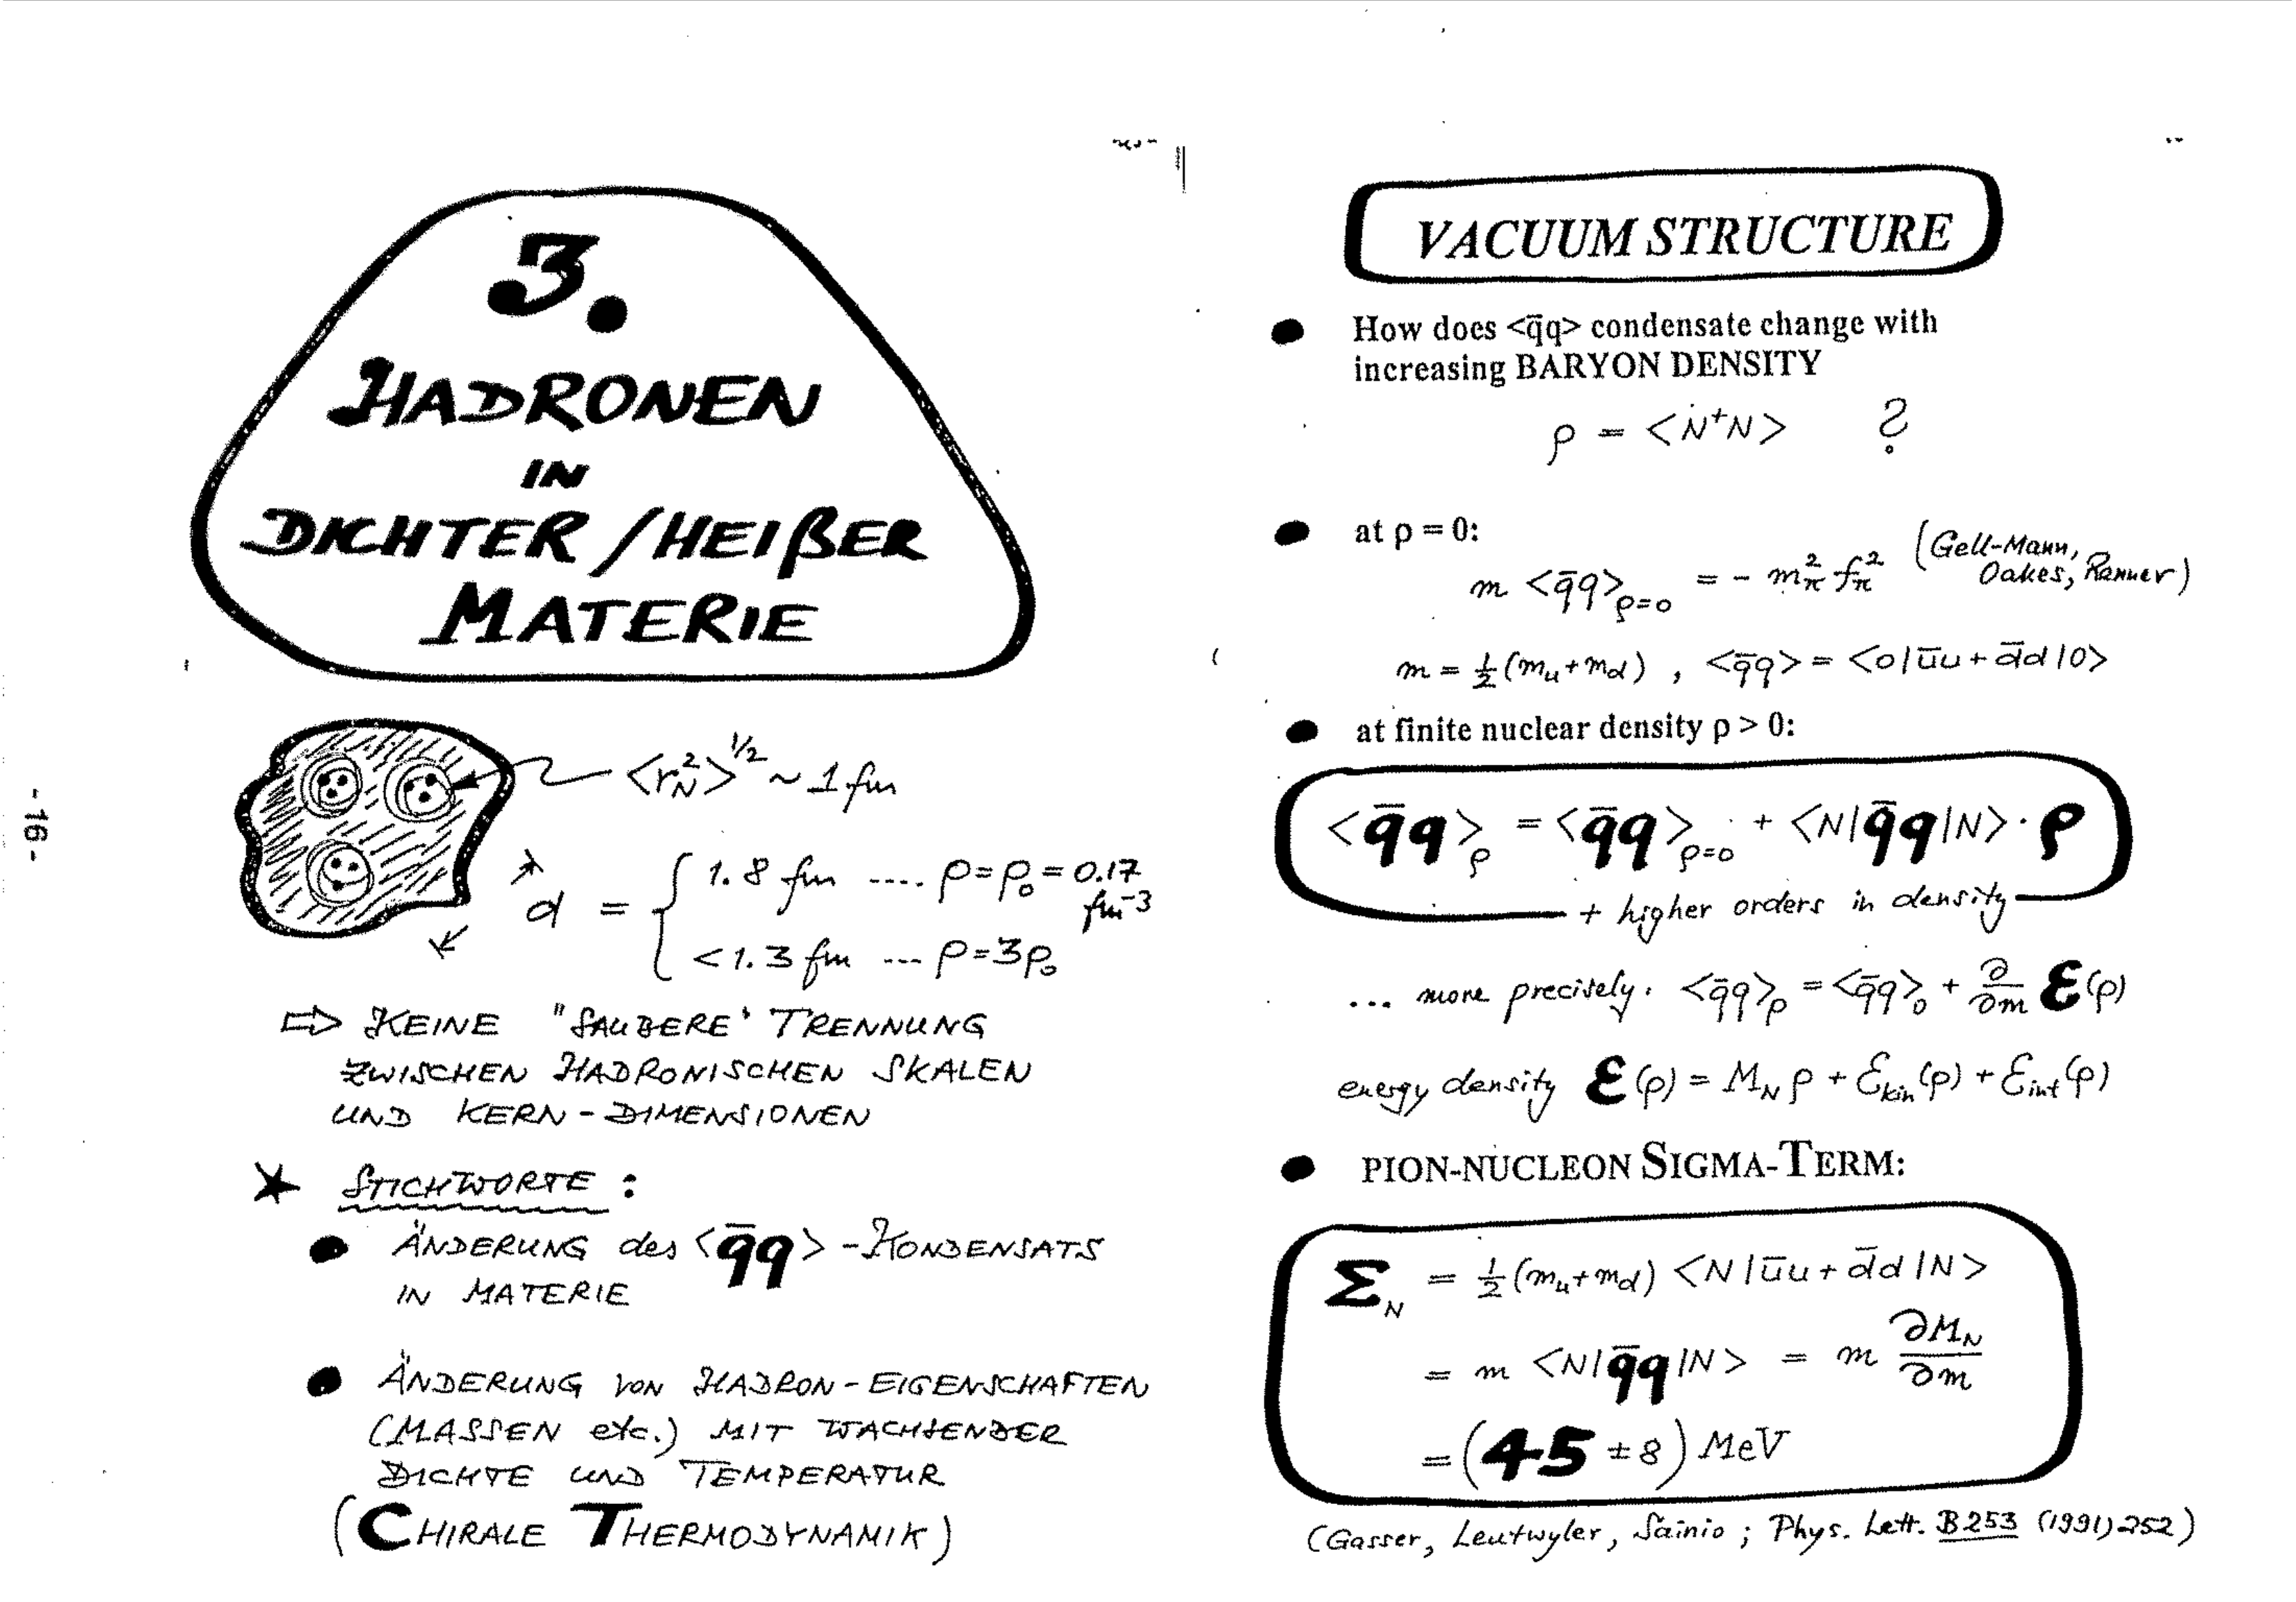 3.
HADRONEN
IN
DICHTER/HEIßER
MATERIE
<r_N^2>^1/2 ~ 1 fm
d = { 1.8 fm .... ρ=ρ₀=0.17 fm⁻³
< 1.3 fm ... ρ=3ρ₀
⇨ KEINE "SAUBERE" TRENNUNG
ZWISCHEN HADRONISCHEN SKALEN
UND KERN-DIMENSIONEN
★ STICHWORTE :
● ÄNDERUNG des <q̄q>-KONDENSATS
IN MATERIE
● ÄNDERUNG VON HADRON-EIGENSCHAFTEN
(MASSEN etc.) MIT WACHSENDER
DICHTE UND TEMPERATUR
(CHIRALE THERMODYNAMIK)
- 16 -
VACUUM STRUCTURE
● How does <q̄q> condensate change with
increasing BARYON DENSITY
ρ = <N⁺N> ?
● at ρ = 0:
m <q̄q>_ρ=0 = - m_π^2 f_π^2 (Gell-Mann,
Oakes, Renner)
m = ½(m_u+m_d) , <q̄q> = <0|ūu + d̄d|0>
● at finite nuclear density ρ > 0:
<q̄q>_ρ = <q̄q>_ρ=0 + <N|q̄q|N> · ρ
+ higher orders in density
... more precisely: <q̄q>_ρ = <q̄q>_0 + ∂/∂m ε(ρ)
energy density ε(ρ) = M_N ρ + ε_kin(ρ) + ε_int(ρ)
● PION-NUCLEON SIGMA-TERM:
Σ_N = ½(m_u+m_d) <N|ūu + d̄d|N>
= m <N|q̄q|N> = m ∂M_N/∂m
= (45 ± 8) MeV
(Gasser, Leutwyler, Sainio ; Phys. Lett. B253 (1991) 252)